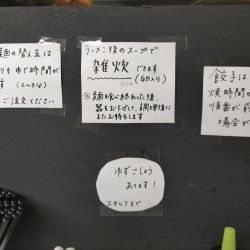 麺の替え玉は
ゆで時間が
(2〜3分)
ご注文ください
ラーメン〆のスープで
雑炊できます
(卵入り)
※麺を食べ終わった後、
器をお下げして、調理後に
またお持ちします
餃子は
焼時間が
順番が前
場合が
ゆずごしょう
あります!
スタッフまで